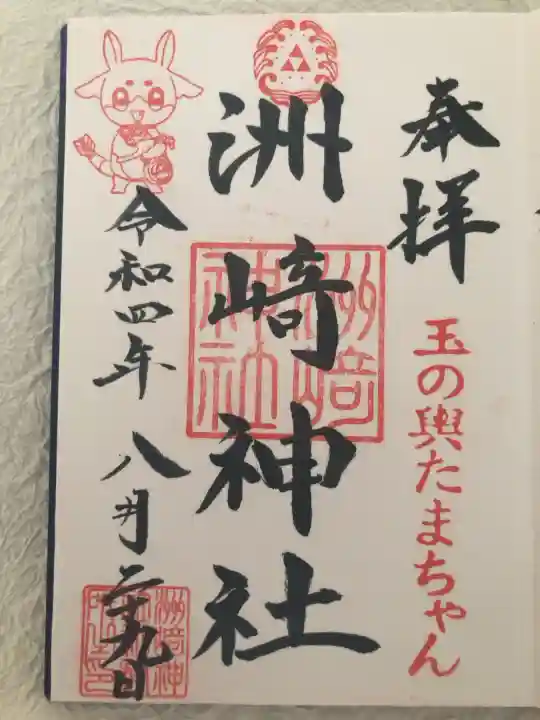 奉拝
玉の輿たまちゃん
洲崎神社
洲崎神社
令和四年八月二十九日